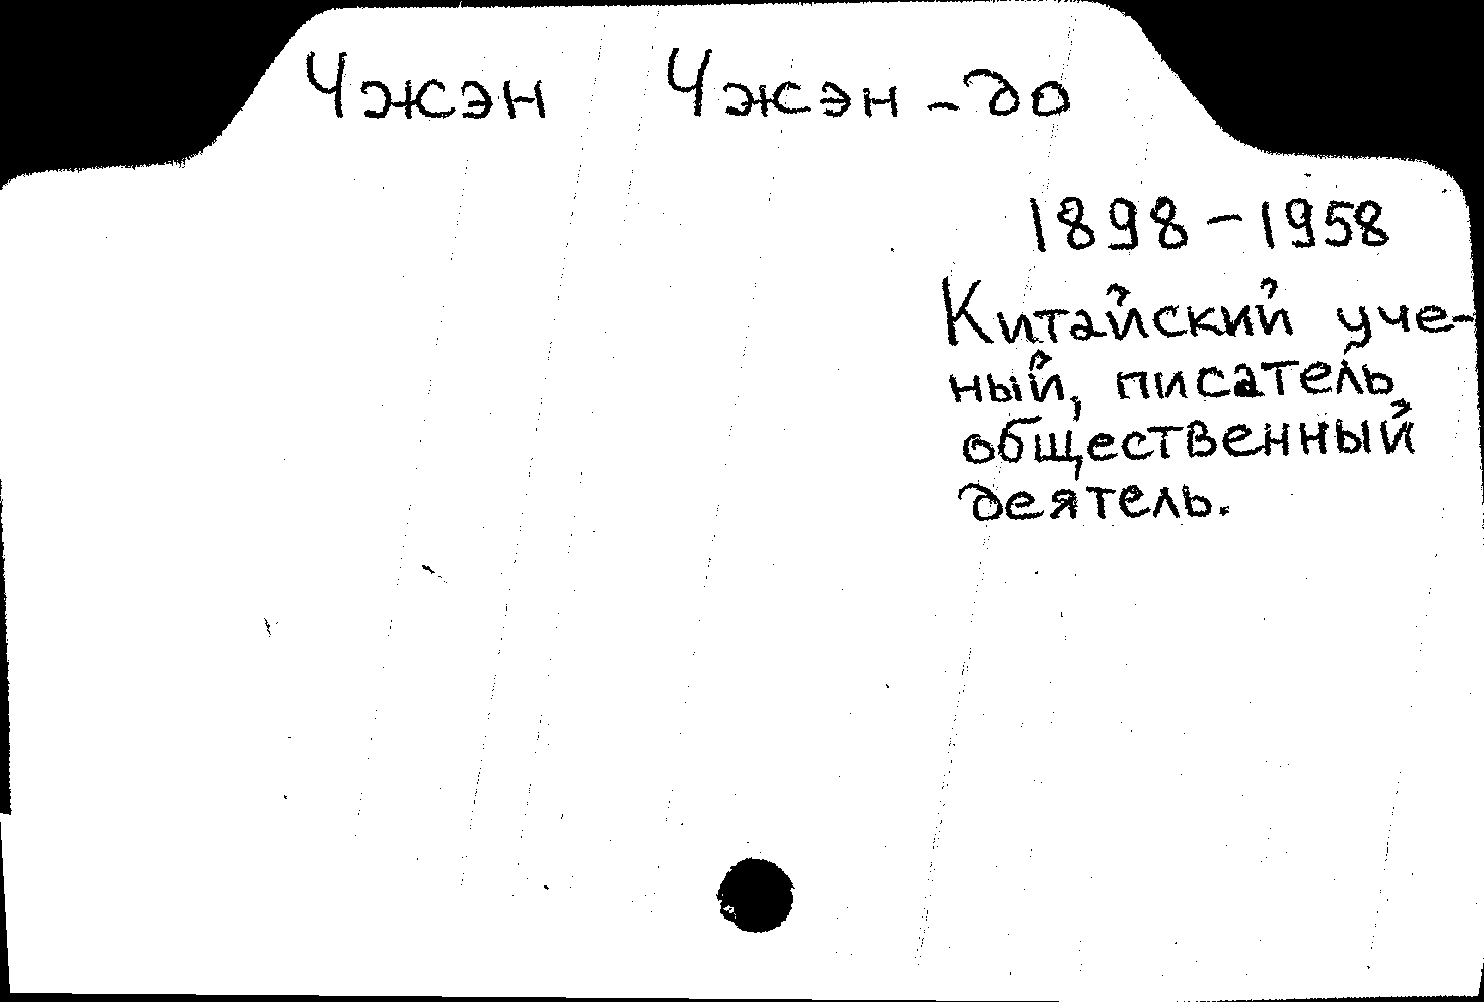 Чжэн Чжэн-до
1898-1958
Китайский уче-
ный, писатель,
общественный
деятель.